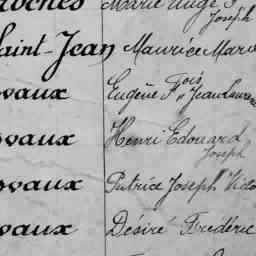 Marie Ange
Joseph
Saint-Jean Maurice Marie
vaux Eugène Fois Jean Laurent
vaux Henri Edouard
Joseph
vaux Patrice Joseph Victo
vaux Désiré Frédéric